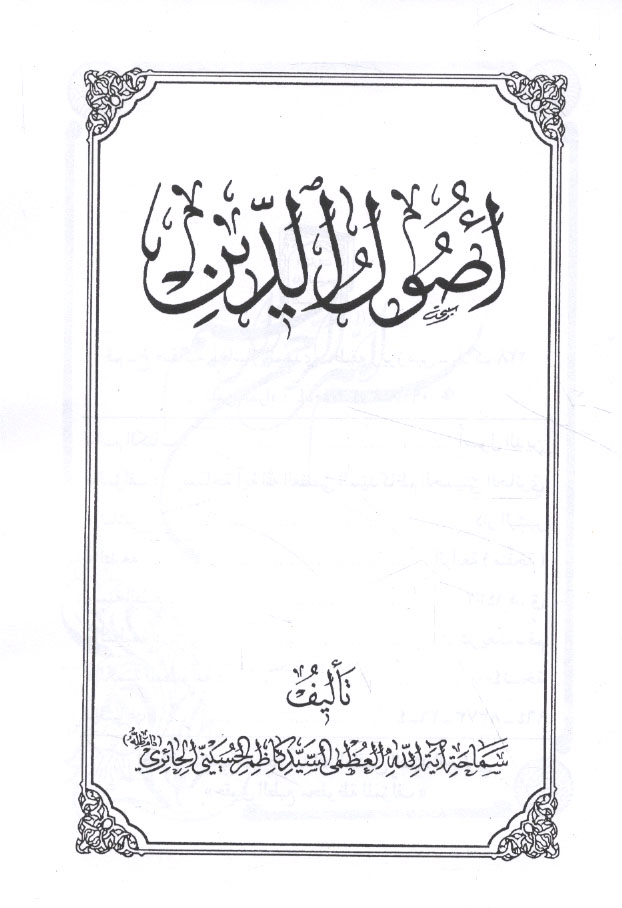 أُصُولُ الدِّينِ
تَأْلِيفُ
سَمَاحَةِ آيَةِ اللهِ العُظْمَى السَّيِّدِ كَاظِمِ الحُسَيْنِيِّ الحَائِرِيِّ (دَامَ ظِلُّهُ)